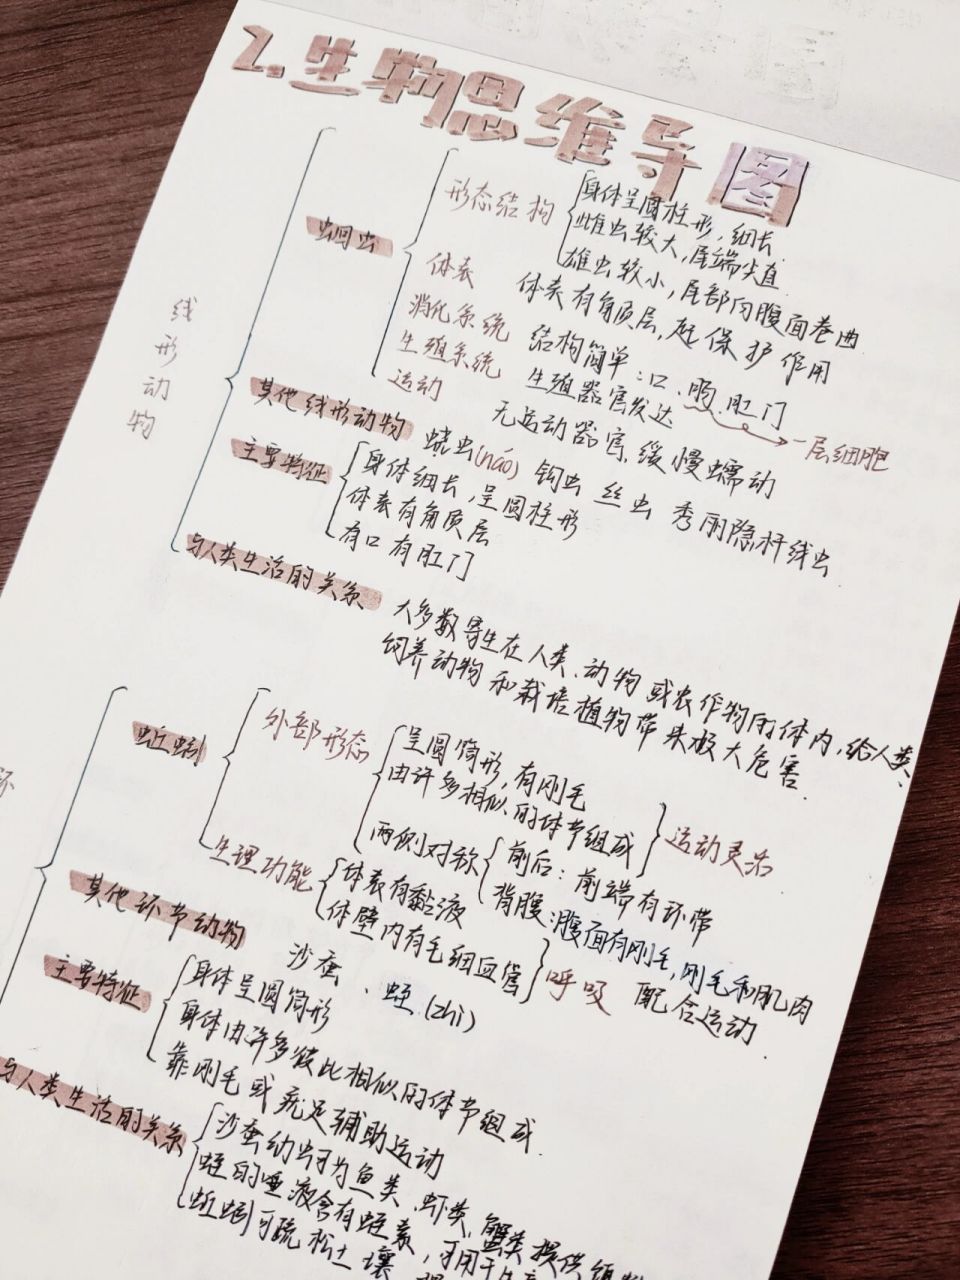 2.生物思维导图
线形动物
蛔虫
形态结构
身体呈圆柱形,细长
雌虫较大,尾端尖直
雄虫较小,尾部向腹面卷曲
体表
体表有角质层,起保护作用
消化系统
结构简单:口、肠、肛门
一层细胞
生殖系统
生殖器官发达
运动
无运动器官,缓慢蠕动
其他线形动物
蛲虫(náo) 钩虫 丝虫 秀丽隐杆线虫
主要特征
身体细长,呈圆柱形
体表有角质层
有口有肛门
与人类生活的关系
大多数寄生在人类、动物或农作物的体内,给人类、
饲养动物和栽培植物带来极大危害.
环
蚯蚓
外部形态
呈圆筒形,有刚毛
由许多相似的体节组成
运动灵活
两侧对称
前后:前端有环带
背腹:腹面有刚毛,刚毛和肌肉
配合运动.
生理功能
体表有黏液
体壁内有毛细血管
呼吸
其他环节动物
沙蚕、蛭(zhì)
主要特征
身体呈圆筒形
身体由许多彼此相似的体节组成.
靠刚毛或疣足辅助运动
与人类生活的关系
沙蚕幼虫可为鱼类、虾类、蟹类提供
蛭的唾液含有蛭素,可用于生产
蚯蚓可疏松土壤